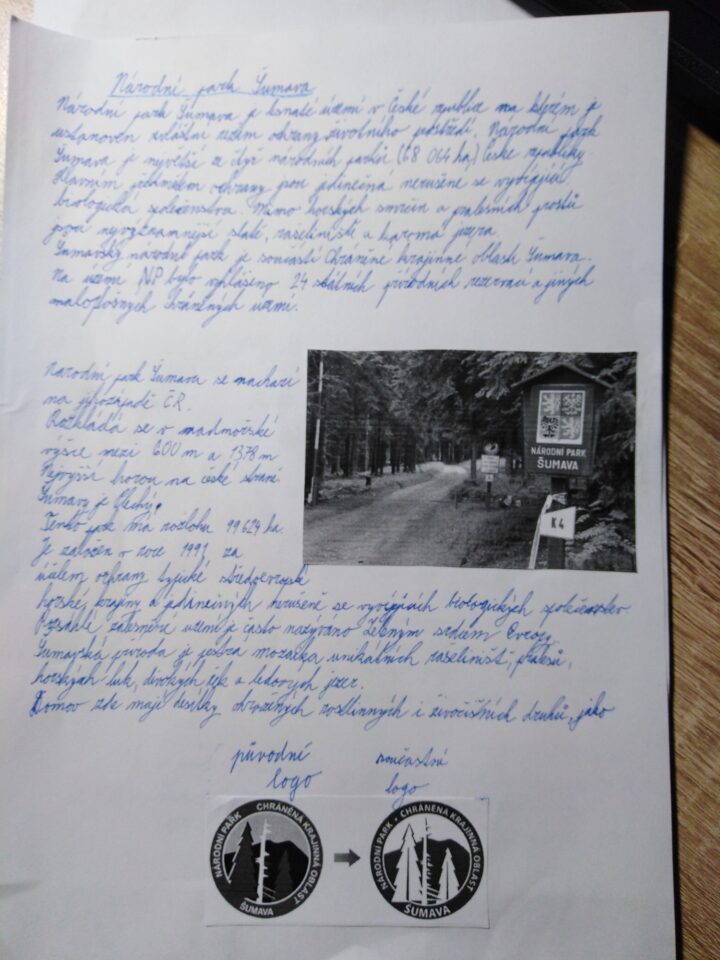 Národní park Šumava
Národní park Šumava je lesnaté území v České republice na kterém je
ustanoven zvláštní režim ochrany životního prostředí. Národní park
Šumava je největší ze čtyř národních parků (68 064 ha) České republiky.
Hlavním předmětem ochrany jsou jedinečná nerušeně se vyvíjející
biologická společenstva. Mimo horských smrčin a pralesních prostů
jsou nejvýznamnější slatě, rašeliniště a karoma jezera
Šumavský národní park je součástí Chráněné krajinné oblasti Šumava.
Na území NP bylo vyhlášeno 24 státních přírodních rezervací a jiných
maloplosných chráněných území.
Národní park Šumava se nachází
na jihozápadě ČR.
Rozkládá se v nadmořské
výšce mezi 600 m a 1378 m
Nejvyšší horou na české straně
Šumavy je Plechý.
Tento park má rozlohu 99 624 ha.
Je založen v roce 1991 za
účelem ochrany typické středoevropské
horské krajiny a jedinečných nerušeně se vyvíjejících biologických společenstev
Rozsáhlé zalesněné území je často nazýváno Zeleným srdcem Evropy.
Šumavská příroda je pestrá mozaika unikátních rašelinišť, pralesů,
horských luk, divokých řek a ledových jezer.
Domov zde mají desítky ohrožených rostlinných i živočišných druhů, jako
NÁRODNÍ PARK
ŠUMAVA
K4
původní
logo
součastné
logo
NÁRODNÍ PARK CHRÁNĚNÁ KRAJINNÁ OBLAST
ŠUMAVA
NÁRODNÍ PARK • CHRÁNĚNÁ KRAJINNÁ OBLAST
ŠUMAVA